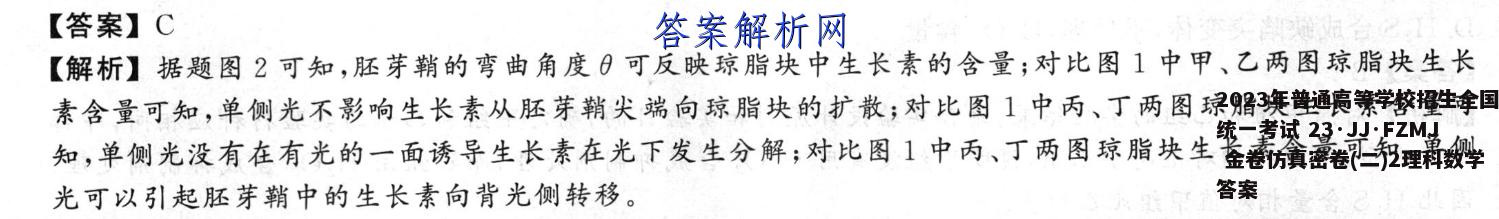 【答案】C
答案解析网
【解析】据题图2可知,胚芽鞘的弯曲角度θ可反映琼脂块中生长素的含量;对比图1中甲、乙两图琼脂块生长
素含量可知,单侧光不影响生长素从胚芽鞘尖端向琼脂块的扩散;对比图1中丙、丁两图琼脂块生长素含量可
知,单侧光没有在有光的一面诱导生长素在光下发生分解;对比图1中丙、丁两图琼脂块生长素含量可知,单侧
光可以引起胚芽鞘中的生长素向背光侧转移。
2023年普通高等学校招生全国
统一考试 23·JJ·FZMJ
金卷仿真密卷(二)2理科数学
答案